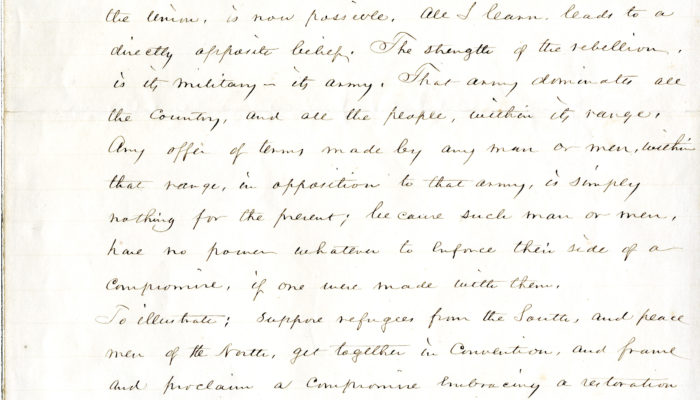 the Union, is now possible. All I learn, leads to a
directly opposite belief. The strength of the rebellion,
is its military — its army. That army dominates all
the country, and all the people, within its range.
Any offer of terms made by any man or men, within
that range, in opposition to that army, is simply
nothing for the present; because such man or men,
have no power whatever to enforce their side of a
compromise, if one were made with them.
To illustrate; Suppose refugees from the South, and peace
men of the North, get together in Convention, and frame
and proclaim a compromise embracing a restoration